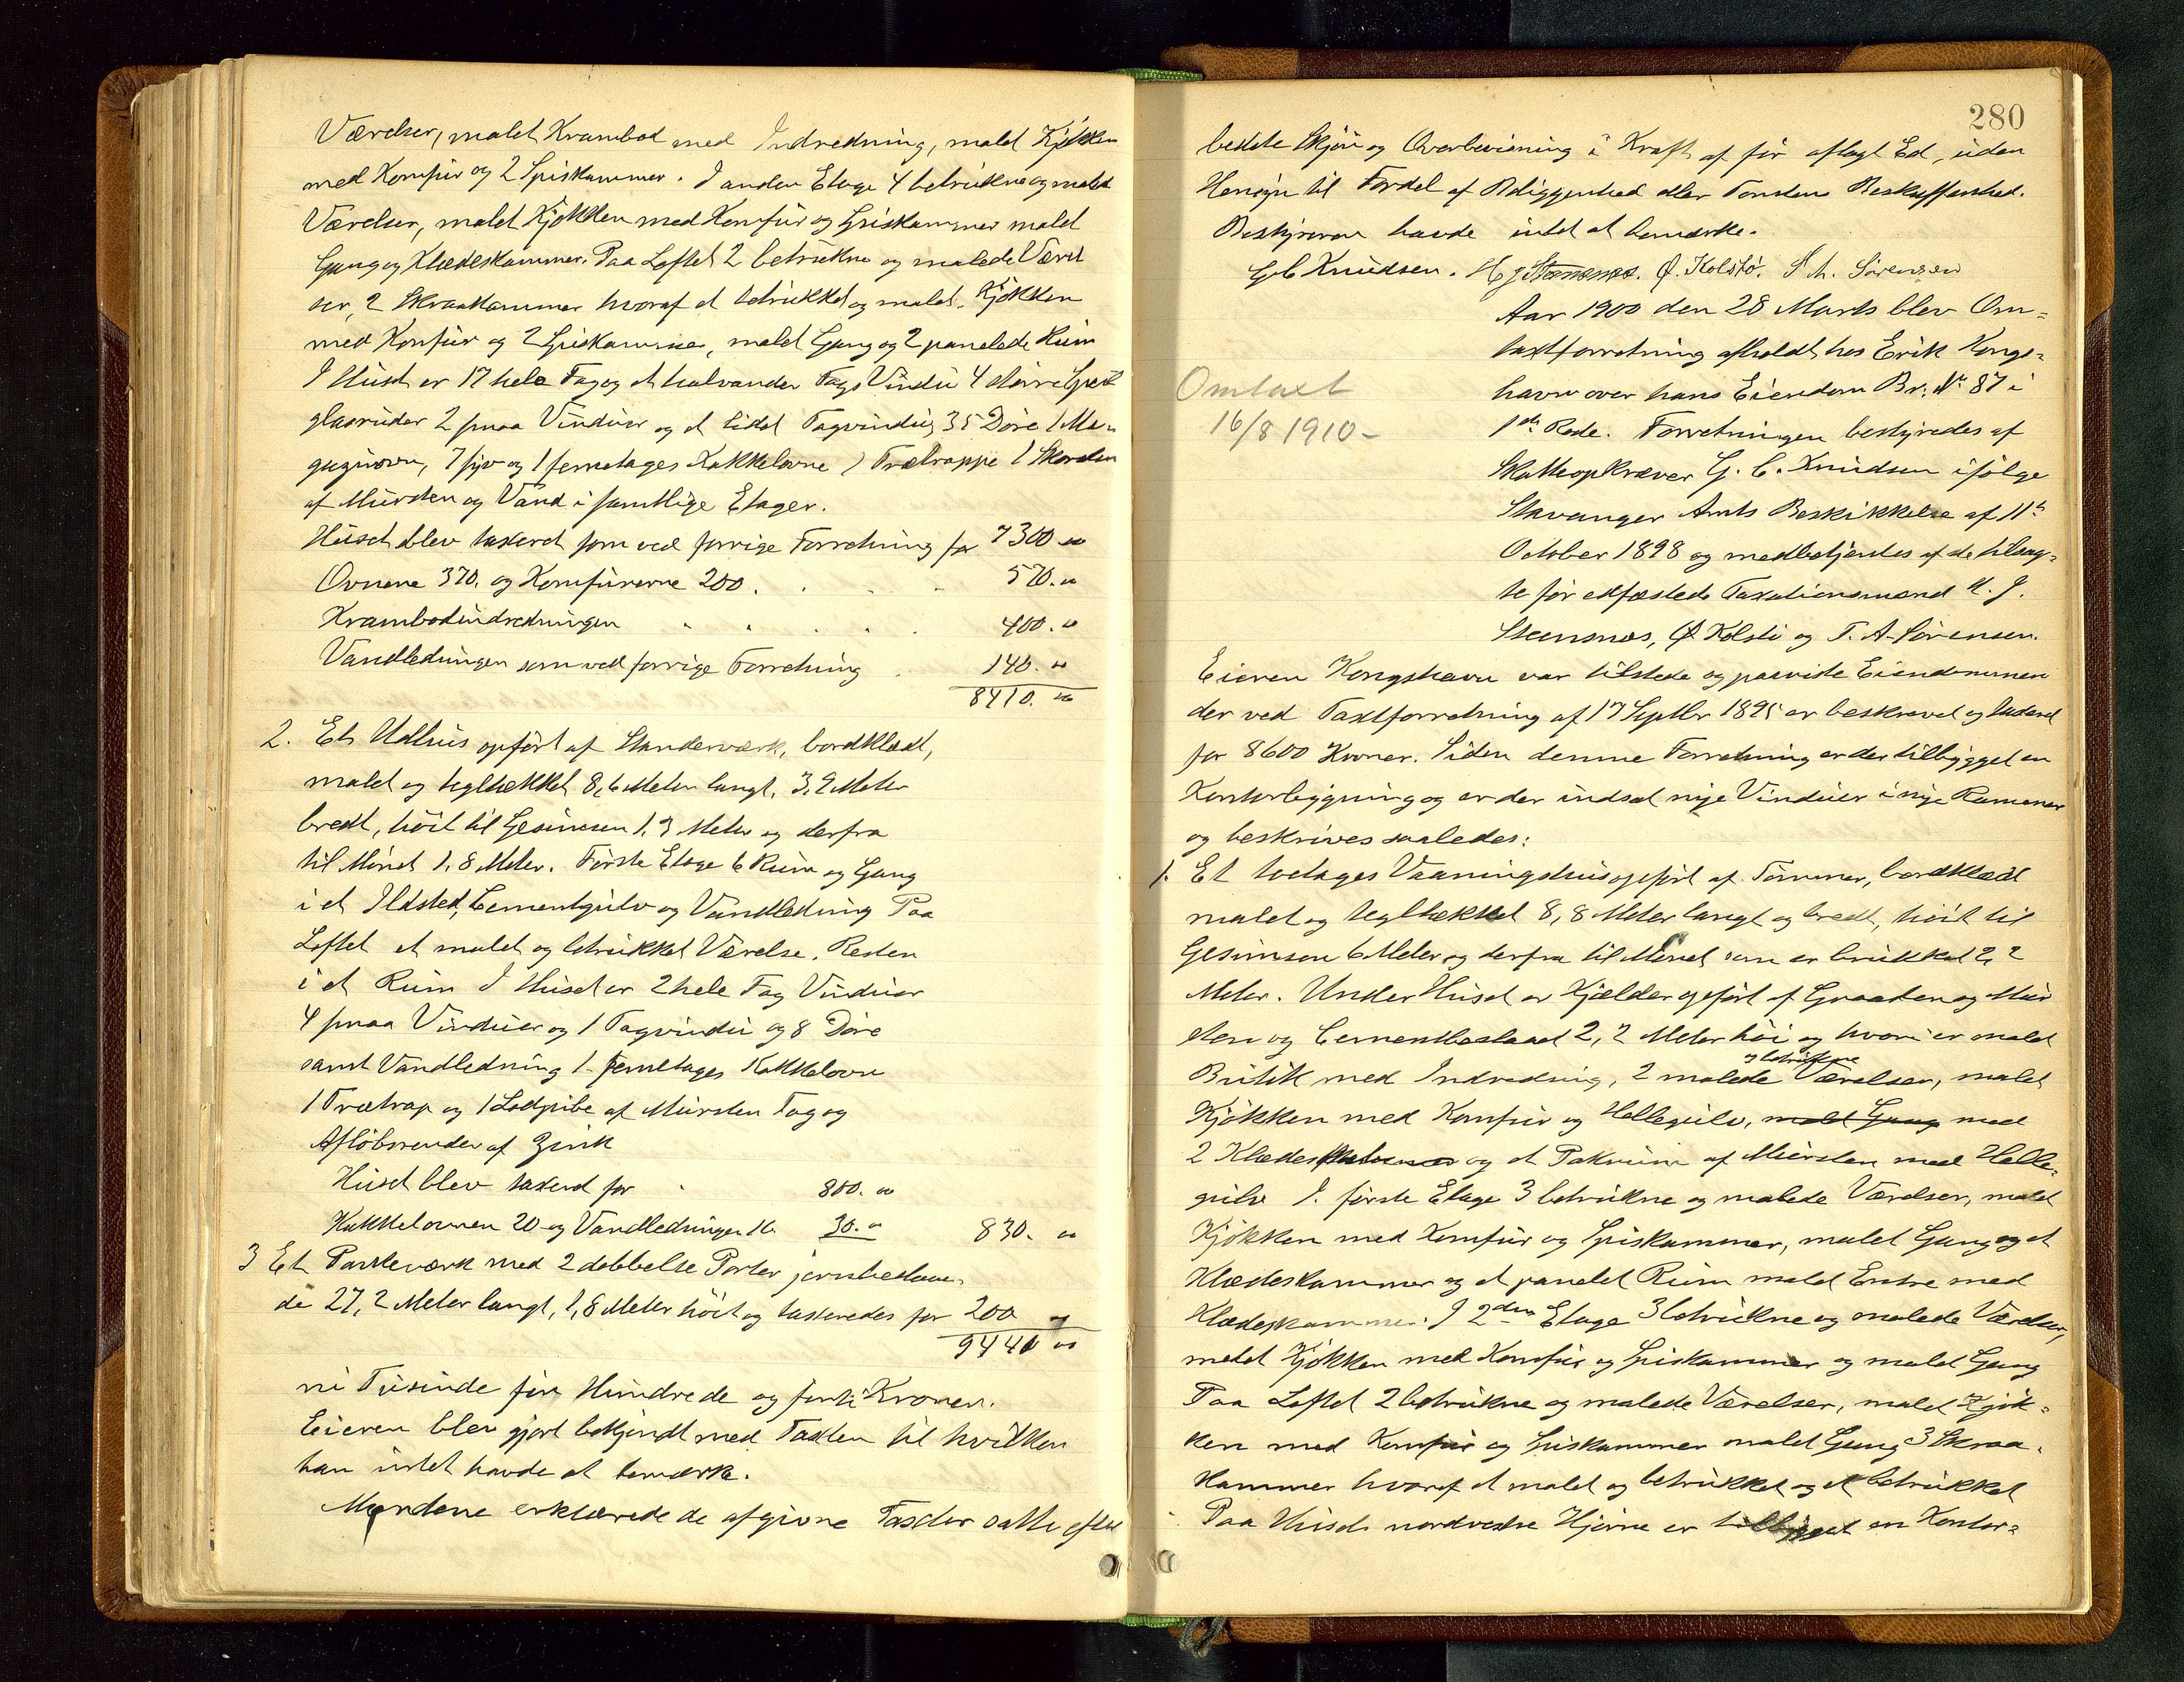 Værelser, malet Krambod med Indredning, malet Kjøkken
med Komfur og 2 Spiskammer. I anden Etage 4 betrukne og malede
Værelser, malet Kjøkken med Komfur og Spiskammer malet
Gang og Klædeskammer. Paa Loftet 2 betrukne og malede Værel
ser, 2 Skraakammer hvoraf et betrukket og malet. Kjøkken
med Komfur og 2 Spiskammer, malet Gang og 2 panelede Rum
I Huset er 17 hele Fag og et halvanden Fags Vindu 4 større Speil
glasruder 2 smaa Vinduer og et lidet Tagvindu, 35 Døre 1 Ma-
gasinovn, 7 og 1 femetages Kakkelovne 1 Trætrappe 1 Skorsten
af Mursten og Vand i samtlige Etager.
Huset blev taxeret som ved forrige Forretning for 7300 "
Ovnene 370. og Komfurerne 200 . . . . 570. "
Krambodindredningen . . . . . 400. "
Vandledningen som ved forrige Forretning . 140. "
8410. "
2. Et Udhus opført af Standerværk, bordklædt,
malet og teglhækket 8,6 Meter langt, 3,9 Meter
bredt, høit til Gesimsen 1,9 Meter og derfra
til Mønet 1.8 Meter. Første Etage 6 Rum og Gang
i et Ildsted, Cementgulv og Vandledning Paa
Loftet et malet og betrukket Værelse. Resten
i et Rum I Huset er 2 hele Fag Vinduer
4 smaa Vinduer og 1 Tagvindu og 8 Døre
samt Vandledning 1 femetages Kakkelovn
1 Trætrap og 1 Lodpibe af Mursten Tag og
Afløbsrender af Zink
Huset blev taxeret for . 800. "
Kakkelovnen 20 og Vandledningen 10. 30. " 830. "
3 Et Portværk med 2 dobbelte Porter jernbeslaae-
de 27,2 Meter langt, 1,8 Meter høit og taxeredes for 200 "
9440 "
ni Tusinde fire Hundrede og førti Kroner.
Eieren blev gjort bekjendt med Taxten til hvilken
han intet havde at bemærke.
Mændene erklærede de afgivne Taxter satte efter
280
bedste Skjøn og Overbevisning i Kraft af før aflagt Ed, uden
Hensyn til Fordel af Beliggenhed eller Tomtens Beskaffenhed.
Bestyreren havde intet at bemærke.
G C Knudsen. H J Stensnes. Ø. Kolstø. T. A. Sørensen
Aar 1900 den 28 Marts blev Om-
taxtforretning afholdt hos Erik Kongs-
havn over hans Eiendom Br. No 87 i
1ste Rode. Forretningen bestyredes af
Skatteopkræver G. C. Knudsen ifølge
Stavanger Amts Beskikkelse af 11te
October 1898 og medbetjentes af de tilsag-
te før edfæstede Taxationsmænd H. J.
Stensnes, Ø Kolstø og T. A. Sørensen.
Omtaxt
16/8 1910 -
Eieren Kongshavn var tilstede og paaviste Eiendommen
der ved Taxtforretning af 17 Septbr 1895 er beskrevet og taxeret
for 8600 Kroner. Siden denne Forretning er der tilbygget en
Kontorbygning og er der indsat nye Vinduer i nye Rammer
og beskrives saaledes:
1. Et toetages Vaaningshus opført af Tømmer, bordklædt
malet og teglhækket 8,8 Meter langt og bredt, høit til
Gesimsen 6 Meter og derfra til Mønet som er brukket 2,2
Meter. Under Huset er Kjælder opført af Graasten og Mur
sten og Cementbeslaaet 2,2 Meter høi og hvori er malet
Butik med Indredning, 2 malede og betrukne Værelser, malet
Kjøkken med Komfur og Hellegulv, malet Gang med
2 Klædeskammer og et Pakrum af Mursten med Helle-
gulv I første Etage 3 betrukne og malede Værelser, malet
Kjøkken med Komfur og Spiskammer, malet Gang og et
Klædeskammer og et panelet Rum malet Entre med
Klædeskammer. I 2den Etage 3 betrukne og malede Værelser,
malet Kjøkken med Komfur og Spiskammer og malet Gang
Paa Loftet 2 betrukne og malede Værelser, malet Kjøk-
ken med Komfur og Spiskammer malet Gang 3 Skraa-
kammer hvoraf et malet og betrukket og et betrukket
Paa Husets nordvestre Hjørne er tilbygget en Kontor-